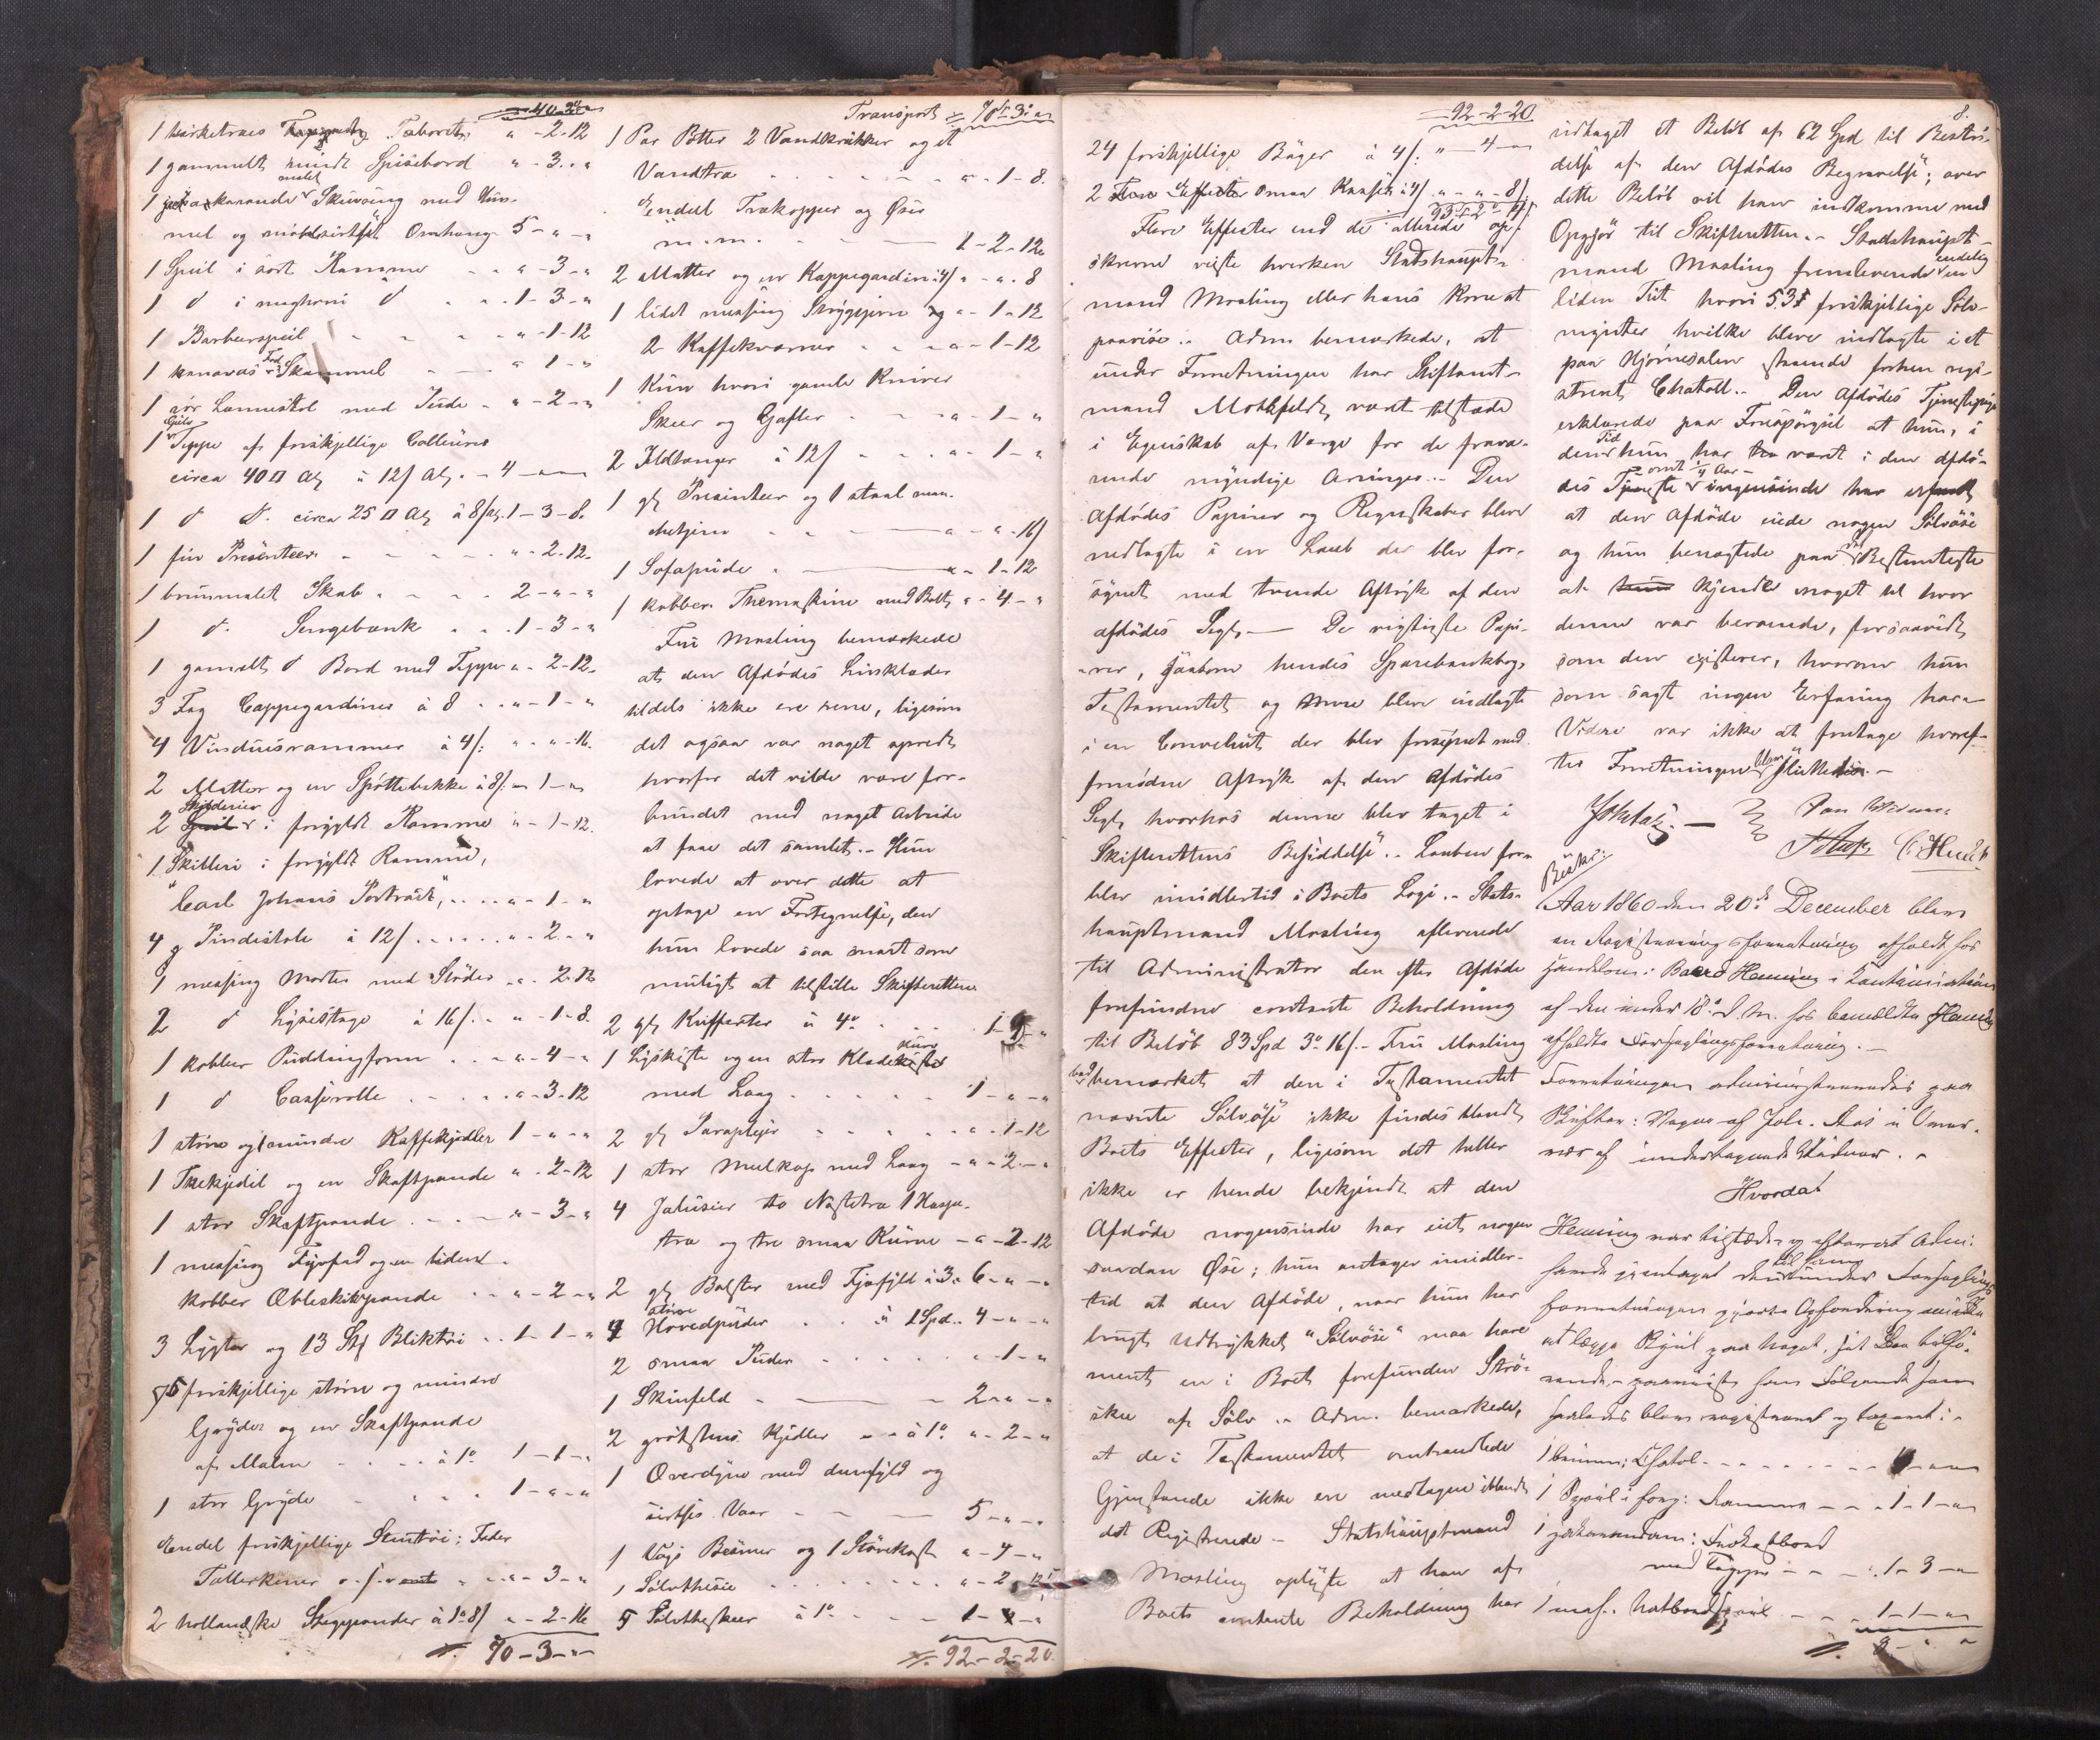 40-2-"
1 birketræes Taboret " - 2-12
1 gammelt rundt Spisebord " - 3 - "
1 malet Skuvseng med Him-
mel og Omhæng 5 - " - "
1 Speil i sort Ramme " - 3 - "
1 d i maghoni d 1 - 3 - "
1 Barbeerspeil " - 1 - 12
1 kanavas Fod Skammel " 1 - "
1 Lænestol med Pude " - 2 - "
1 Gulv Teppe af forskjellige Colleurer
circa 40 □ Al à 12/ Al. - 4 - "
1 d d. circa 25 □ Al à 8/Al. 1 - 3 - 8.
1 fin Præsenteer " - 2 - 12.
1 brunmalet Skab 2 - " - "
1 d. Sengebænk 1 - 3 - "
1 gamelt d Bord med Teppe " - 2 - 12.
3 Fag Cappegardiner à 8 " - 1 - "
4 Vinduesrammer à 4/: " - " - 16.
2 Matter og en Spøttebakke à 8/. " - 1 - "
2 Skilderier i forgyldt Ramme " - 1 - 12.
1 Skilleri i forgyldt Ramme,
"Carl Johans Portrait", " - 1 - "
4 Pindestole à 12/ " - 2 - "
1 messing Morter med Støder " - 2 - 12
2 d Lysestage à 16/. " - 1 - 8.
1 kobber Puddingform " - 4 - "
1 d Casserolle " - 3 - 12
1 større og 1 mindre Kaffekjedler 1 - " - "
1 Thekjedel og en Skaftpande " - 2 - 12
1 stor Skaftpande " - 3 - "
1 messing Fyrfad og en liden
kobber Æbleskivpande " - 2 - "
3 Lygter og 13 Stk Bliktøi 1 - 1 - "
5 forskjellige større og mindre
Gryder og en Skaftpande
af Malm à 1° 1 - 1 - "
1 stor Gryde 1 - " - "
Endel forskjellige Steentøi; Fader
Tallerkener " - 3 - "
2 hollandske Steegpander à 1° 8/ " - 2 - 16
70 - 3 - "
Transport 70 - 3 - "
1 Par Potter 2 Vandkrukker og et
Vandtræ " - 1 - 8.
Endel Trækopper og Øser
m. m. 1 - 2 - 12
2 Matter og en Kappegardin à 4/ " - " - 8
1 lidet messing Strygejern " - 1 - 12
2 Kaffekværner " - 1 - 12
1 Kurv hvori gamle Kniver
Skeer og Gafler " - 1 - "
2 Ildtænger à 12/ " - 1 - "
1 gl Præsenteer og 1 staal man-
" - " - 16/
1 Sofapude " - 1 - 12
1 kobber Themaskine med Bolt " - 4 - "
Fru Mosling bemærkede
at den Afdødes Linklæder
tildels ikke ere rene, ligesom
det ogsaa var noget spredt
hvorfor det vilde være for-
bundet med noget Arbeide
at faae det samlet. - Hun
lovede at over dette at
optage en Fortegnelse, den
hun lovede saa snart som
muligt at tilstille Skifteretten
2 gl Kufferter à 4°
1 Lyskiste og en stor Klædekurv
med Laag 1 - " - "
2 gl Parapleyer " - 1 - 12
1 stor Melkop med Laag " - 2 - "
4 Jalusier to Nøstetræ 1 Haspe-
træ og tre smaa Kurve " - 2 - 12
2 gl Bolster med Fjærfyld à 3. 6 - " - "
4 større Hovedpuder à 1 Spd. 4 - " - "
2 smaa Puder " - 1 - "
1 Skinfeld 2 - " - "
2 grøtstens Kjedler à 1° " - 2 - "
1 Overdyne med dunfyld og
Vaar 5 - " - "
1 Vægt Besmer og 1 Støvekost " - 4 - "
1 Sølvthesie " - 2 - 12
5 Sølvtheskeer à 1° 1 -
92 - 2 - 20.
92 - 2 - 20
24 forskjellige Bøger à 4/: " - 4 - "
2 smaa Kasser à 4/ " - " - 8/
93 - 2 - 4/
Flere Effecter end de allerede op-
skrevne viste hverken Stadshaupt-
mand Mosling eller hans Kone at
paavise. - Adm bemærkede, at
under Forretningen har Stiftamt-
mand Motzfeldt været tilstæde
i Egenskab af Værge for de fravæ-
rende myndige Arvinger. - Den
Afdødes Papirer og Regnskaber bleve
nedlagte i en Laub der blev for-
seglet med trende Aftryk af den
afdødes Segl. - De vigtigste Papi-
rer, saasom hendes Sparebankbog,
Testamentet og mere bleve indlagte
i en Convelut der blev forseglet med
fornødne Aftryk af den Afdødes
Segl, hvorhos denne blev taget i
Skifterettens Besiddelse. - Lauben for-
blev imidlertid i Boets Logi. - Stads-
hauptmand Mosling afleverede
til Administrator den efter Afdøde
forefundne contante Beholdning
til Beløb 83 Spd 3° 16/. - Fru Mosling
bemærket at den i Testamentet
nævnte Sølvøse ikke findes blandt
Boets Effecter, ligesom det heller
ikke er hende bekjendt at den
Afdøde nogensinde har eiet nogen
saadan Øse; hun antager imidler-
tid at den Afdøde, naar hun har
brugt Udtrykket "Sølvøse" maa have
ment en i Boet forefunden Strø-
skee af Sølv. - Adm. bemærkede,
at de i Testamentet omhandlede
Gjenstande ikke ere medtagne iblandt
det Registrerede. - Stadshauptmand
Mosling oplyste at han af
Boets contante Beholdning har
8.
udtaget et Beløb af 62 Spd til Bestri-
delse af den Afdødes Begravelse; over
dette Beløb vil han indkomme med
Opgjør til Skifteretten. - Stadshaupt-
mand Mosling fremleverede endelig en
liden hvori 53 forskjellige Sølv-
mynter hvilke bleve indlagte i et
paa Hjørnesalen staaende forhen regi-
streret Chatoll. - Den Afdødes Tjenestepige
erklærede paa Forespørgsel at hun, i
den Tid hun har været i den Afdø-
des Tjeneste omt 1/4 Aar ingensinde har
at den Afdøde eiede nogen Sølvøse
og hun benægtede paa det Bestemteste
at kjende noget til hvor
denne var beroende, forsaavidt
som den existerer, hvorom hun
som sagt ingen Erfaring har. -
Videre var ikke at foretage hvoref-
ter Forretningen blev sluttet. -
Aar 1860 den 20de December blev
en Registreringsforretning afholdt hos
Handelsm: Baard Henning i Continuation
af den under 18. d. M. hos bemeldte Henning
afholdte Forseglingsforretning. -
Forretningen administreredes paa
Skifter: Vegne af Joh.
nær af undertegnede Vidner. -
Hvorda:
Henning var tilstæde og efterat Adm:
havde gjentaget den til ham under Forseglings
forretningen gjorte Opfordring
at lægge Skjul paa Noget, hans Bo tilhø-
rende, paaviste han Følgende som
saaledes blev registreret og taxeret: -
1 brunm: Chatol
1 Speil i forg: Ramme 1 - 1 - "
1
med Teppe 1 - 3 - "
1 1 - 1 - "